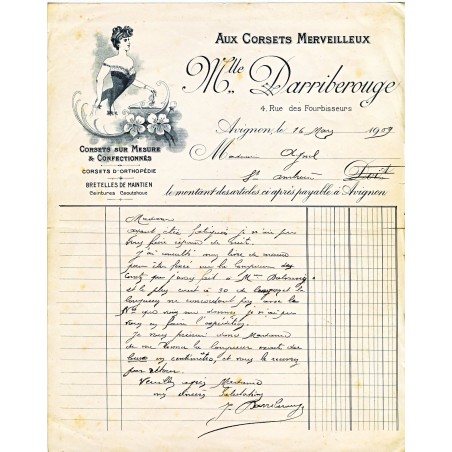 AUX CORSETS MERVEILLEUX
Mlle Darriberouge
4, Rue des Fourbisseurs
Avignon, le 26 Mars 1909
Madame
Doit
le montant des articles ci après payable à Avignon
CORSETS SUR MESURE
& CONFECTIONNÉS
CORSETS D'ORTHOPÉDIE
BRETELLES DE MAINTIEN
Ceintures Caoutchouc
Madame
ayant été fatiguée je n'ai pas
pu vous faire réponse de suite.
J'ai consulté mon livre de mesure
pour être fixée sur la longueur des
corsets que j'avais fait à Mme
et le plus court à 30 de
longueur ne concordant pas avec la
No que vous me donnez je n'ai pas
pu vous en faire l'expédition.
Je vous prierai donc Madame
de me donner la longueur exacte du
busc en centimètres, et vous le recevrez
par retour.
Veuillez agréer Madame
mes sincères Salutations
J. Darriberouge